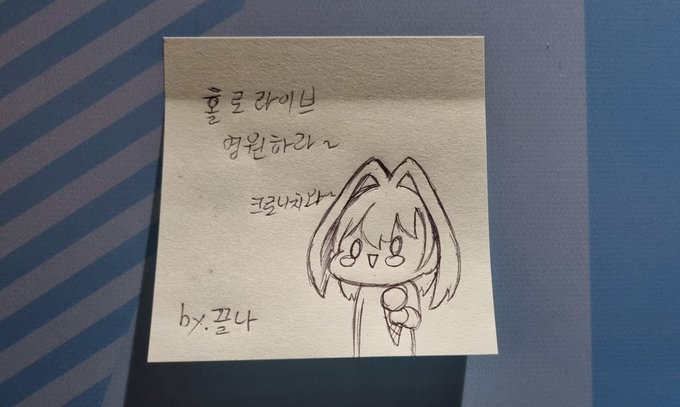 홀로라이브
영원하라~
크로니치와~
by.끝나